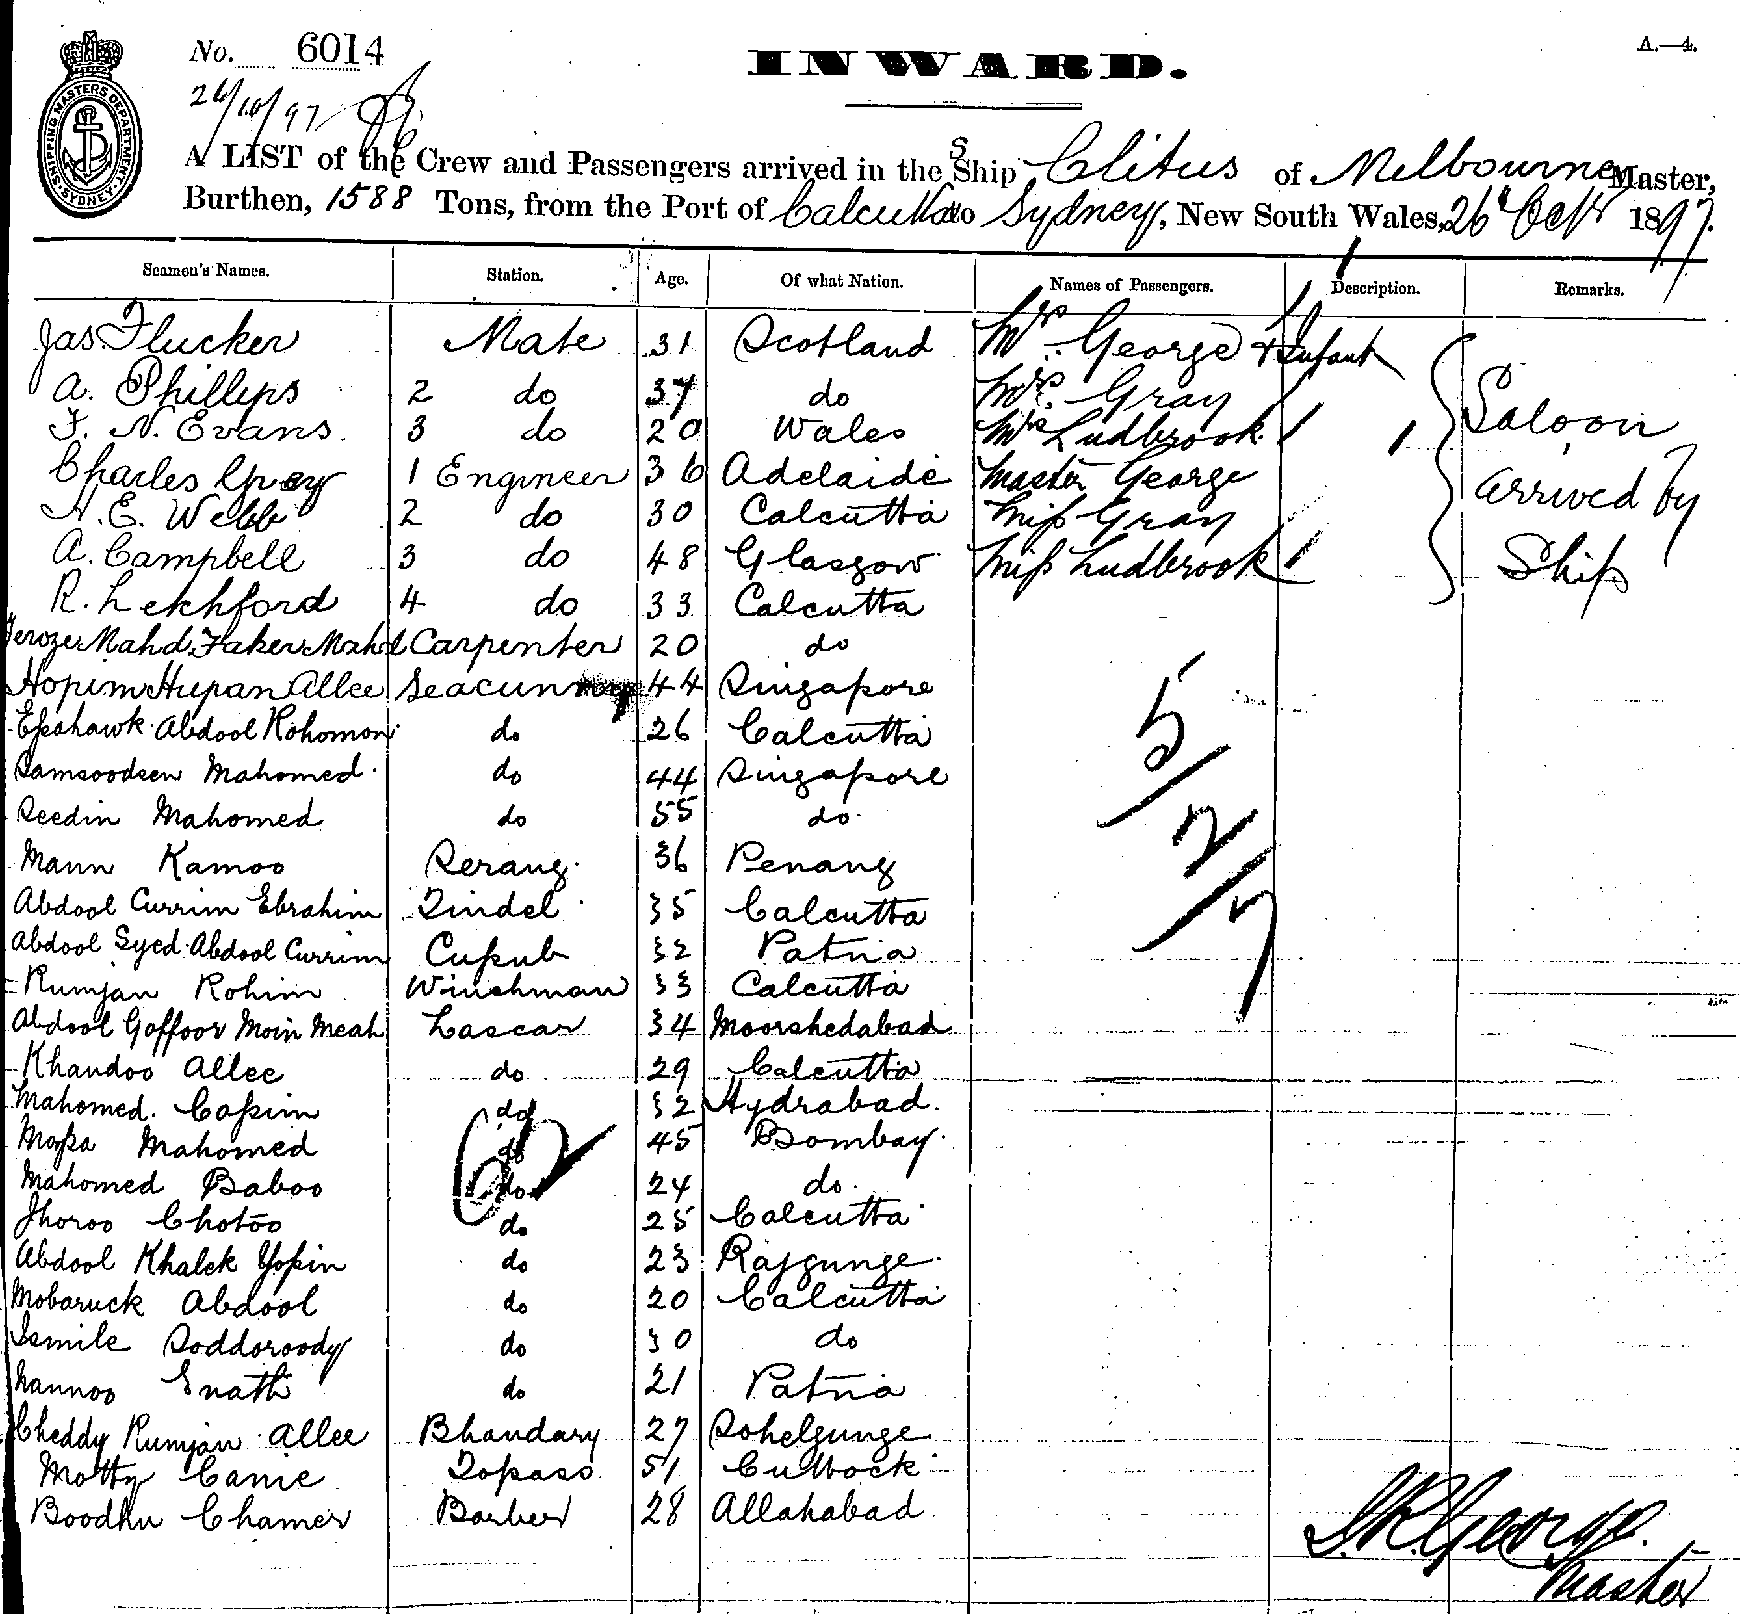 No. 6014
INWARD.
A.—4.
SHIPPING MASTERS DEPARTMENT SYDNEY
26/10/97
A LIST of the Crew and Passengers arrived in the S Ship Clitus of Melbourne Master,
Burthen, 1588 Tons, from the Port of Calcutta to Sydney, New South Wales, 26th Octr 1897.
Seamen's Names. Station. Age. Of what Nation. Names of Passengers. Description. Remarks.
Jas. Flucker Mate 31 Scotland Mrs. George & Infant
A. Phillips 2 do 37 do Mrs. Gray
F. N. Evans 3 do 20 Wales Mrs Ludbrook
Charles Gray 1 Engineer 36 Adelaide Master George
H. E. Webb 2 do 30 Calcutta Miss Gray
A. Campbell 3 do 48 Glasgow Miss Ludbrook
Saloon
arrived by
Ship
R. Lekhford 4 do 33 Calcutta
Feroze Mahd Faker Mahd Carpenter 20 do
Hopim Hupan Allee Seacunny 44 Singapore
Esshawk Abdool Rohomon do 26 Calcutta
Samsoodeen Mahomed do 44 Singapore
Seedin Mahomed do 55 do
Mann Kamoo Serang 36 Penang
Abdool Currim Ebrahim Tindel 35 Calcutta
Abdool Syed Abdool Currim Cupub 32 Patna
Rumjan Rohim Winchman 33 Calcutta
Abdool Goffoor Moin Meah Lascar 34 Moorshedabad
Khandoo Allee do 29 Calcutta
Mahomed Cassim do 32 Hydrabad
Mossa Mahomed do 45 Bombay
Mahomed Baboo do 24 do
Jhoroo Chotoo do 25 Calcutta
Abdool Khalek Yosin do 23 Rajgunge
Mobaruck Abdool do 20 Calcutta
Ismile Soddoroody do 30 do
Nannoo Enath do 21 Patna
Cheddy Rumjan Allee Bhandary 27 Sohelgunge
Motty Canie Topass 51 Cuttock
Boodhu Chamer Barber 28 Allahabad
5/2/7
62
J. R. George
Master